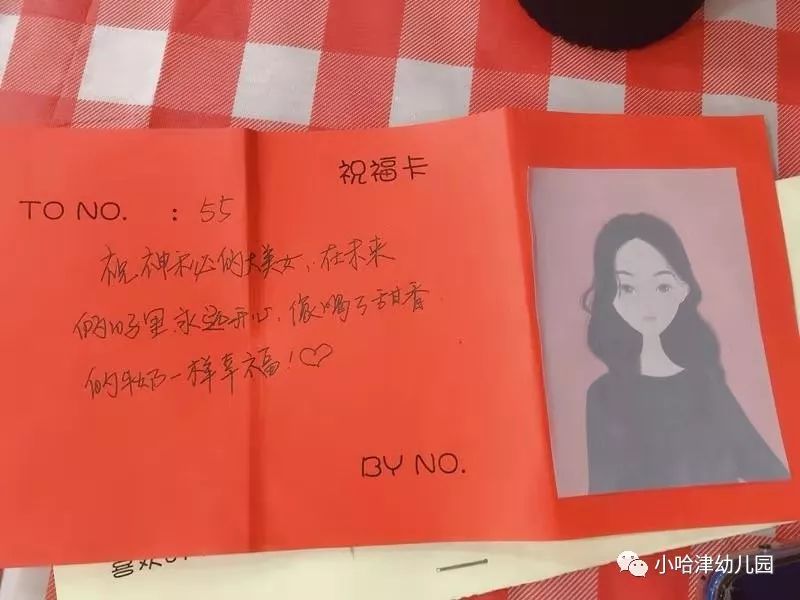 祝福卡
TO NO. : 55
祝神秘的大美女,在未来
的日子里永远开心,像喝了甜香
的牛奶一样幸福!
BY NO.
喜欢
小哈津幼儿园